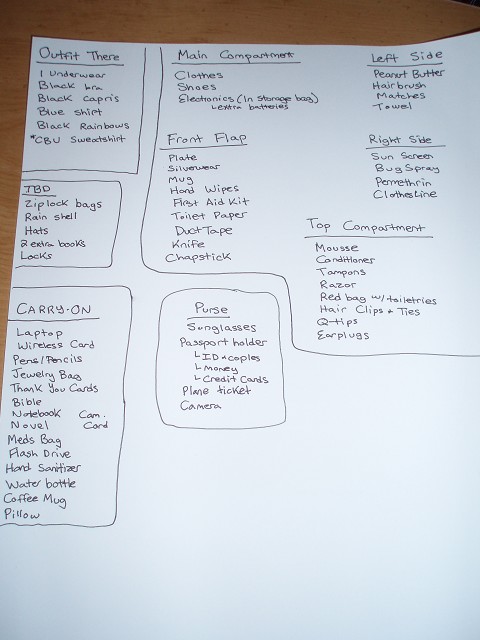 Outfit There
1 Underwear
Black bra
Black capris
Blue shirt
Black Rainbows
*CBU Sweatshirt
TBD
Ziplock bags
Rain shell
Hats
2 extra books
Locks
CARRY-ON
Laptop
Wireless Card
Pens/Pencils
Jewelry Bag
Thank You Cards
Bible
Notebook Cam.
Novel Card
Meds Bag
Flash Drive
Hand Sanitizer
Water bottle
Coffee Mug
Pillow
Main Compartment
Clothes
Shoes
Electronics (In storage bag)
L extra batteries
Front Flap
Plate
Silverwear
Mug
Hand Wipes
First Aid Kit
Toilet Paper
Duct Tape
Knife
Chapstick
Left Side
Peanut Butter
Hairbrush
Matches
Towel
Right Side
Sun Screen
Bug Spray
Permethrin
Clothesline
Top Compartment
Mousse
Conditioner
Tampons
Razor
Red bag w/ toiletries
Hair Clips + Ties
Q-tips
Earplugs
Purse
Sunglasses
Passport holder
L ID + copies
L money
L Credit Cards
Plane ticket
Camera